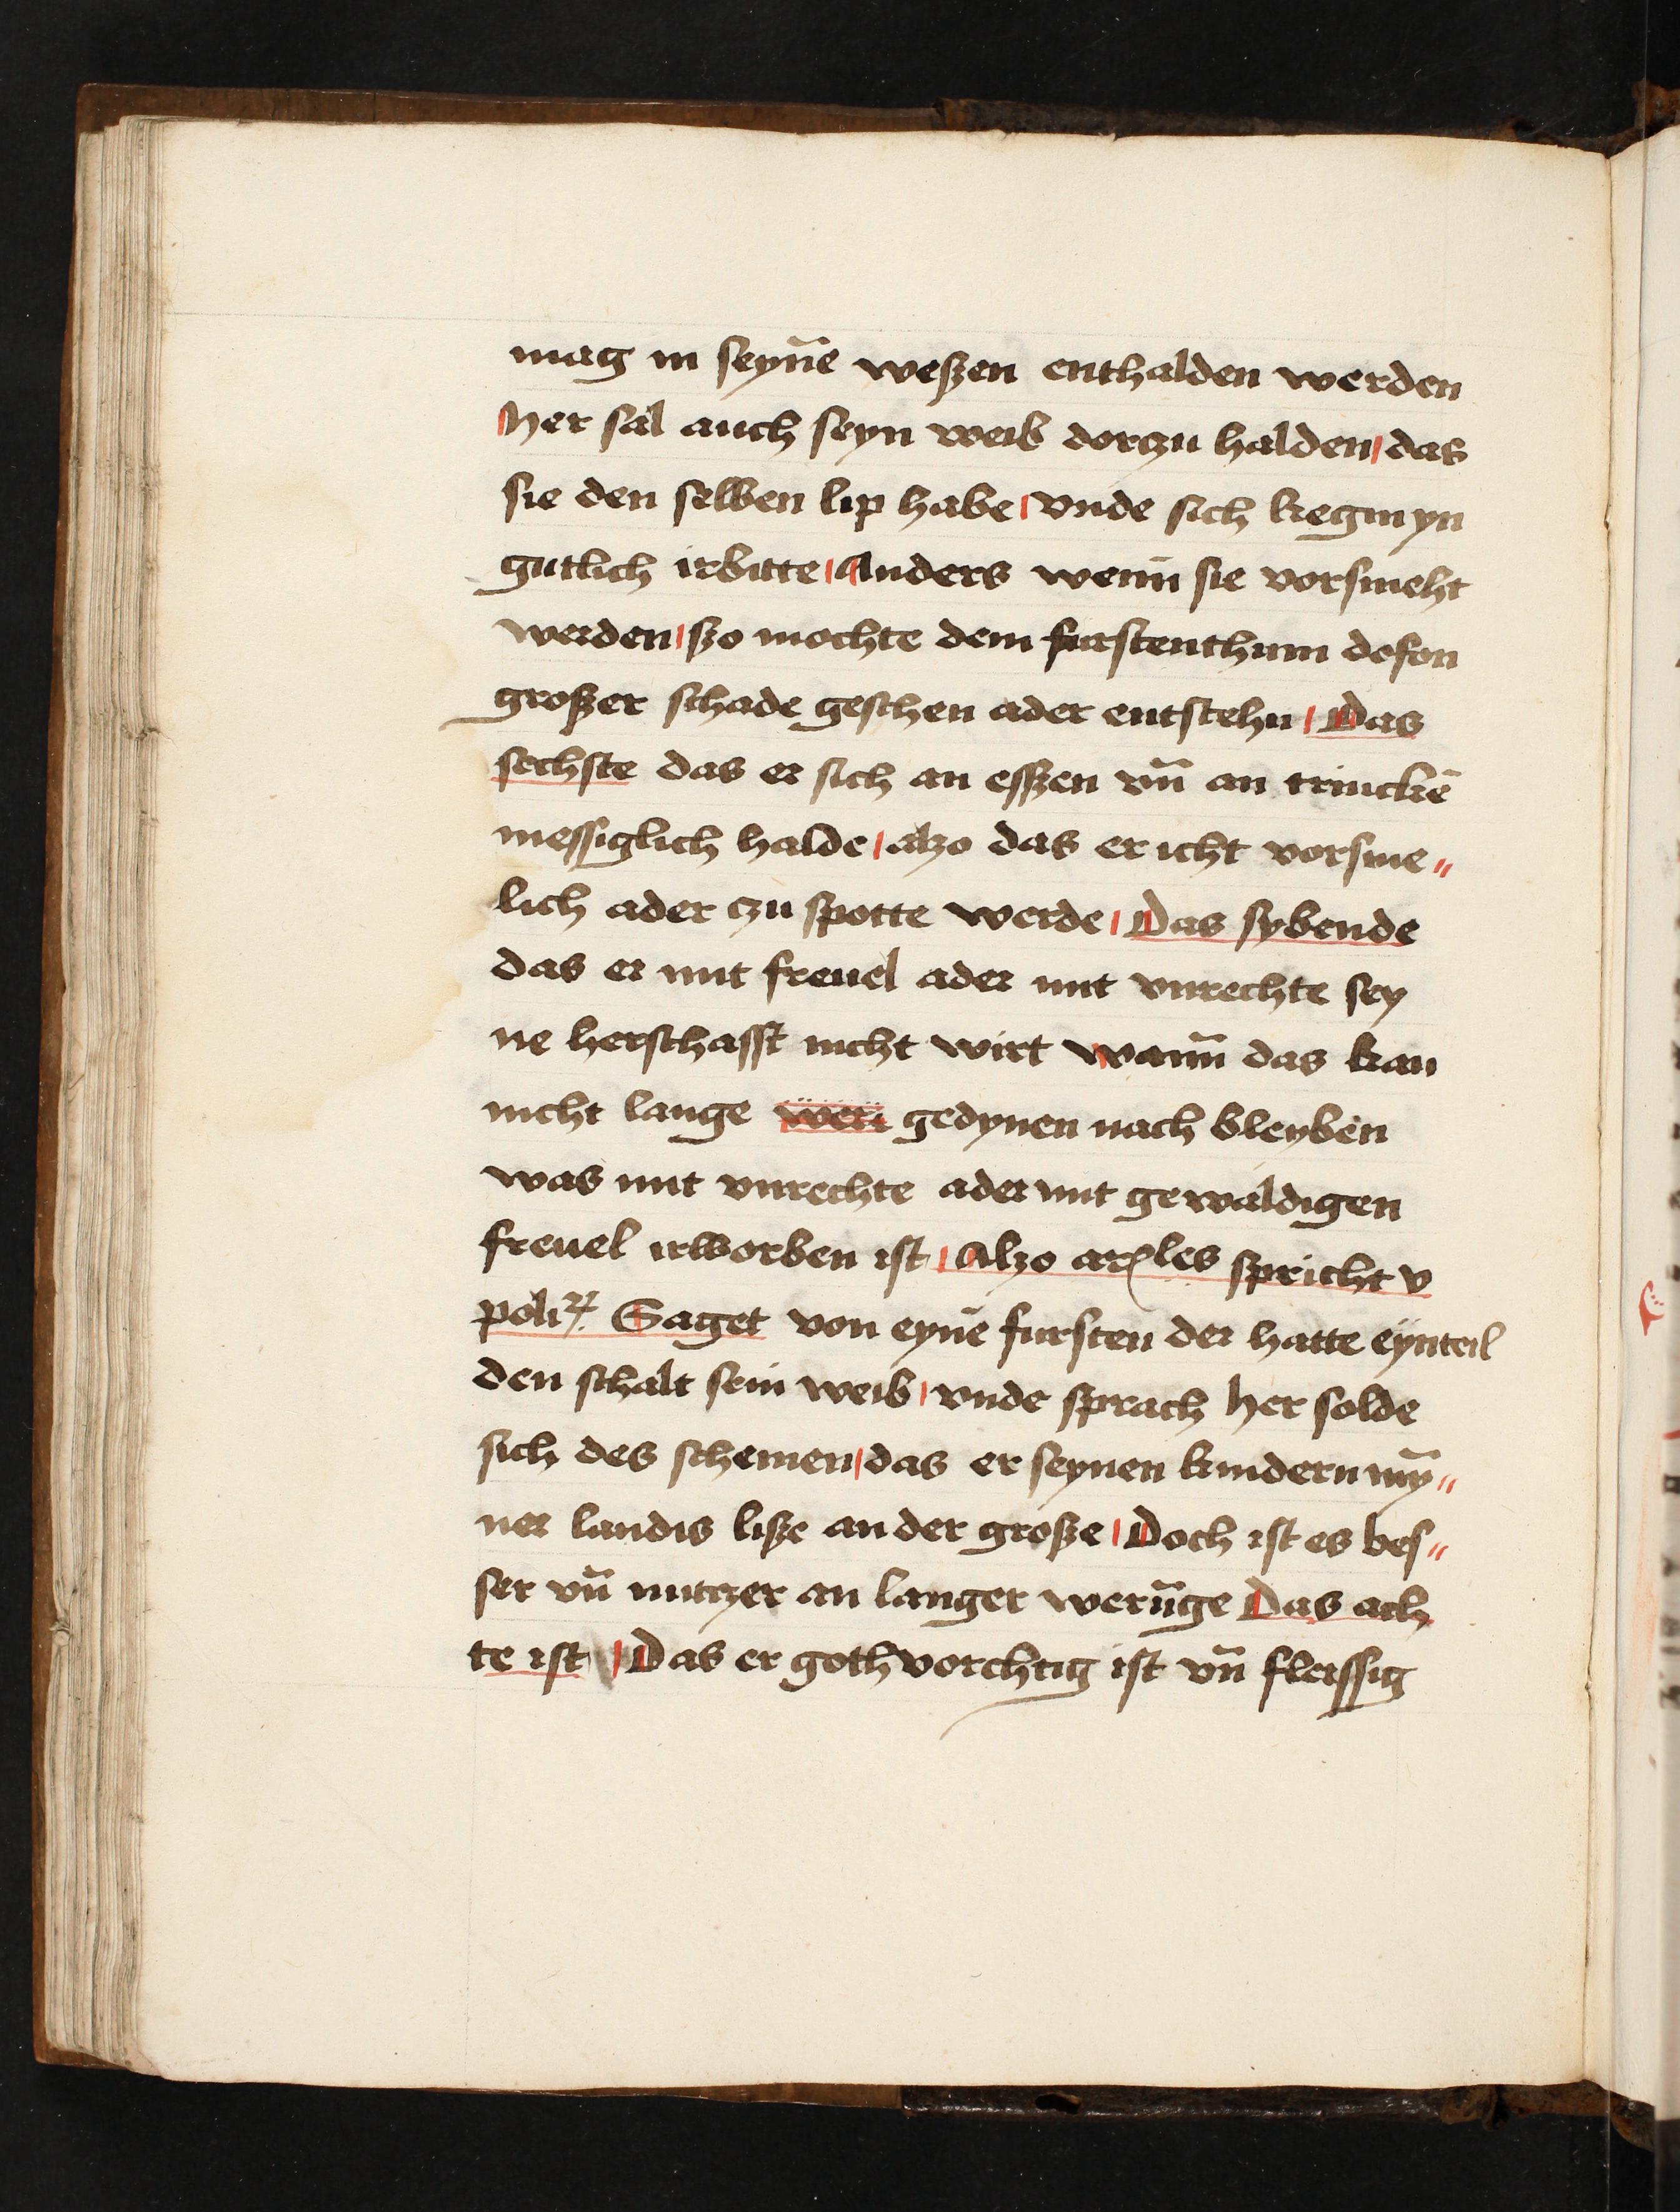 mag in seyne̅ weszen enthalden werden
her sal auch seyn weib dorczu halden | das
sie den selben lip habe | vnde sich kegin yn
gutlich irbitte | Anders wenn̅ sie vorsmeht
werden | szo mochte dem furstenthum dofon
groszer schade geschen ader entstehn | Das
sechste das er sich an esszen vn̅ an trincke̅
messiglich halde | alzo das er icht vorsme⸗
lich ader czu spotte werde | Das sybende
das er mit freuel ader mit vnrechte sey
ne herschafft nicht wirt wann̅ das kan
nicht lange wer gedynen nach bleyben
was mit vnrechte ader mit gewaldigen
freuel irworben ist | Alzo ar̅les spricht v
poliꝝ. Saget von eyne̅ fursten der hatte eynteil
den schalt sein weib | vnde sprach her solde
sich des schemen | das er seynen kindern my̅⸗
ner landis lisze an der grosze | Doch ist es bes⸗
ser vn̅ nutczer an langer weru̅ge Das ach
te ist | Das er goth vorchtig ist vn̅ fleissig